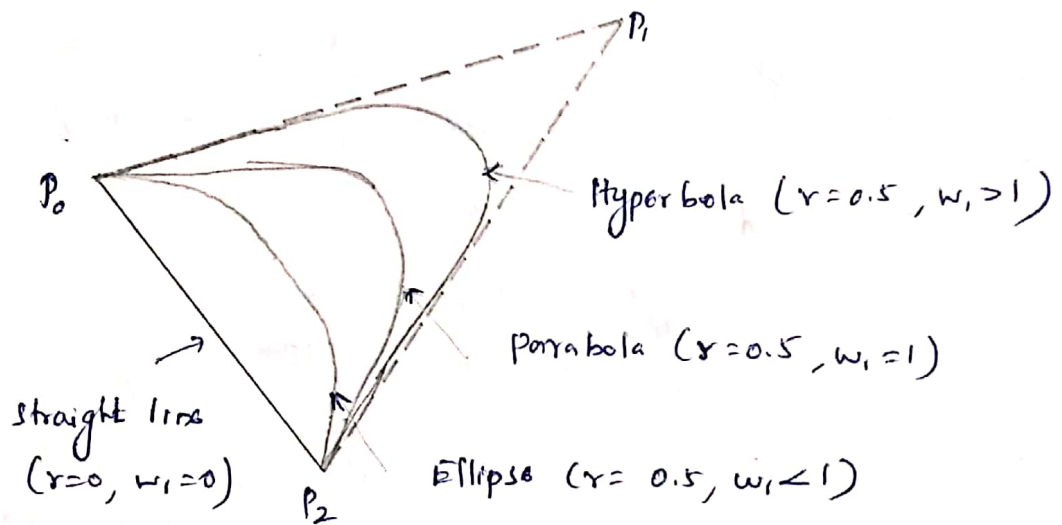 P₁
P₀
Hyperbola (r=0.5, w₁>1)
Parabola (r=0.5, w₁=1)
straight line
(r=0, w₁=0)
Ellipse (r= 0.5, w₁<1)
P₂